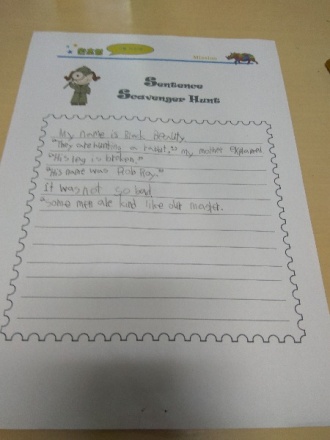 Sentence
Scavenger Hunt
My name is Black Beauty
"They are hunting a rabbit," my mother explained
"His leg is broken."
"His name was Rob Roy."
It was not so bad
"Some men are kind like our master.